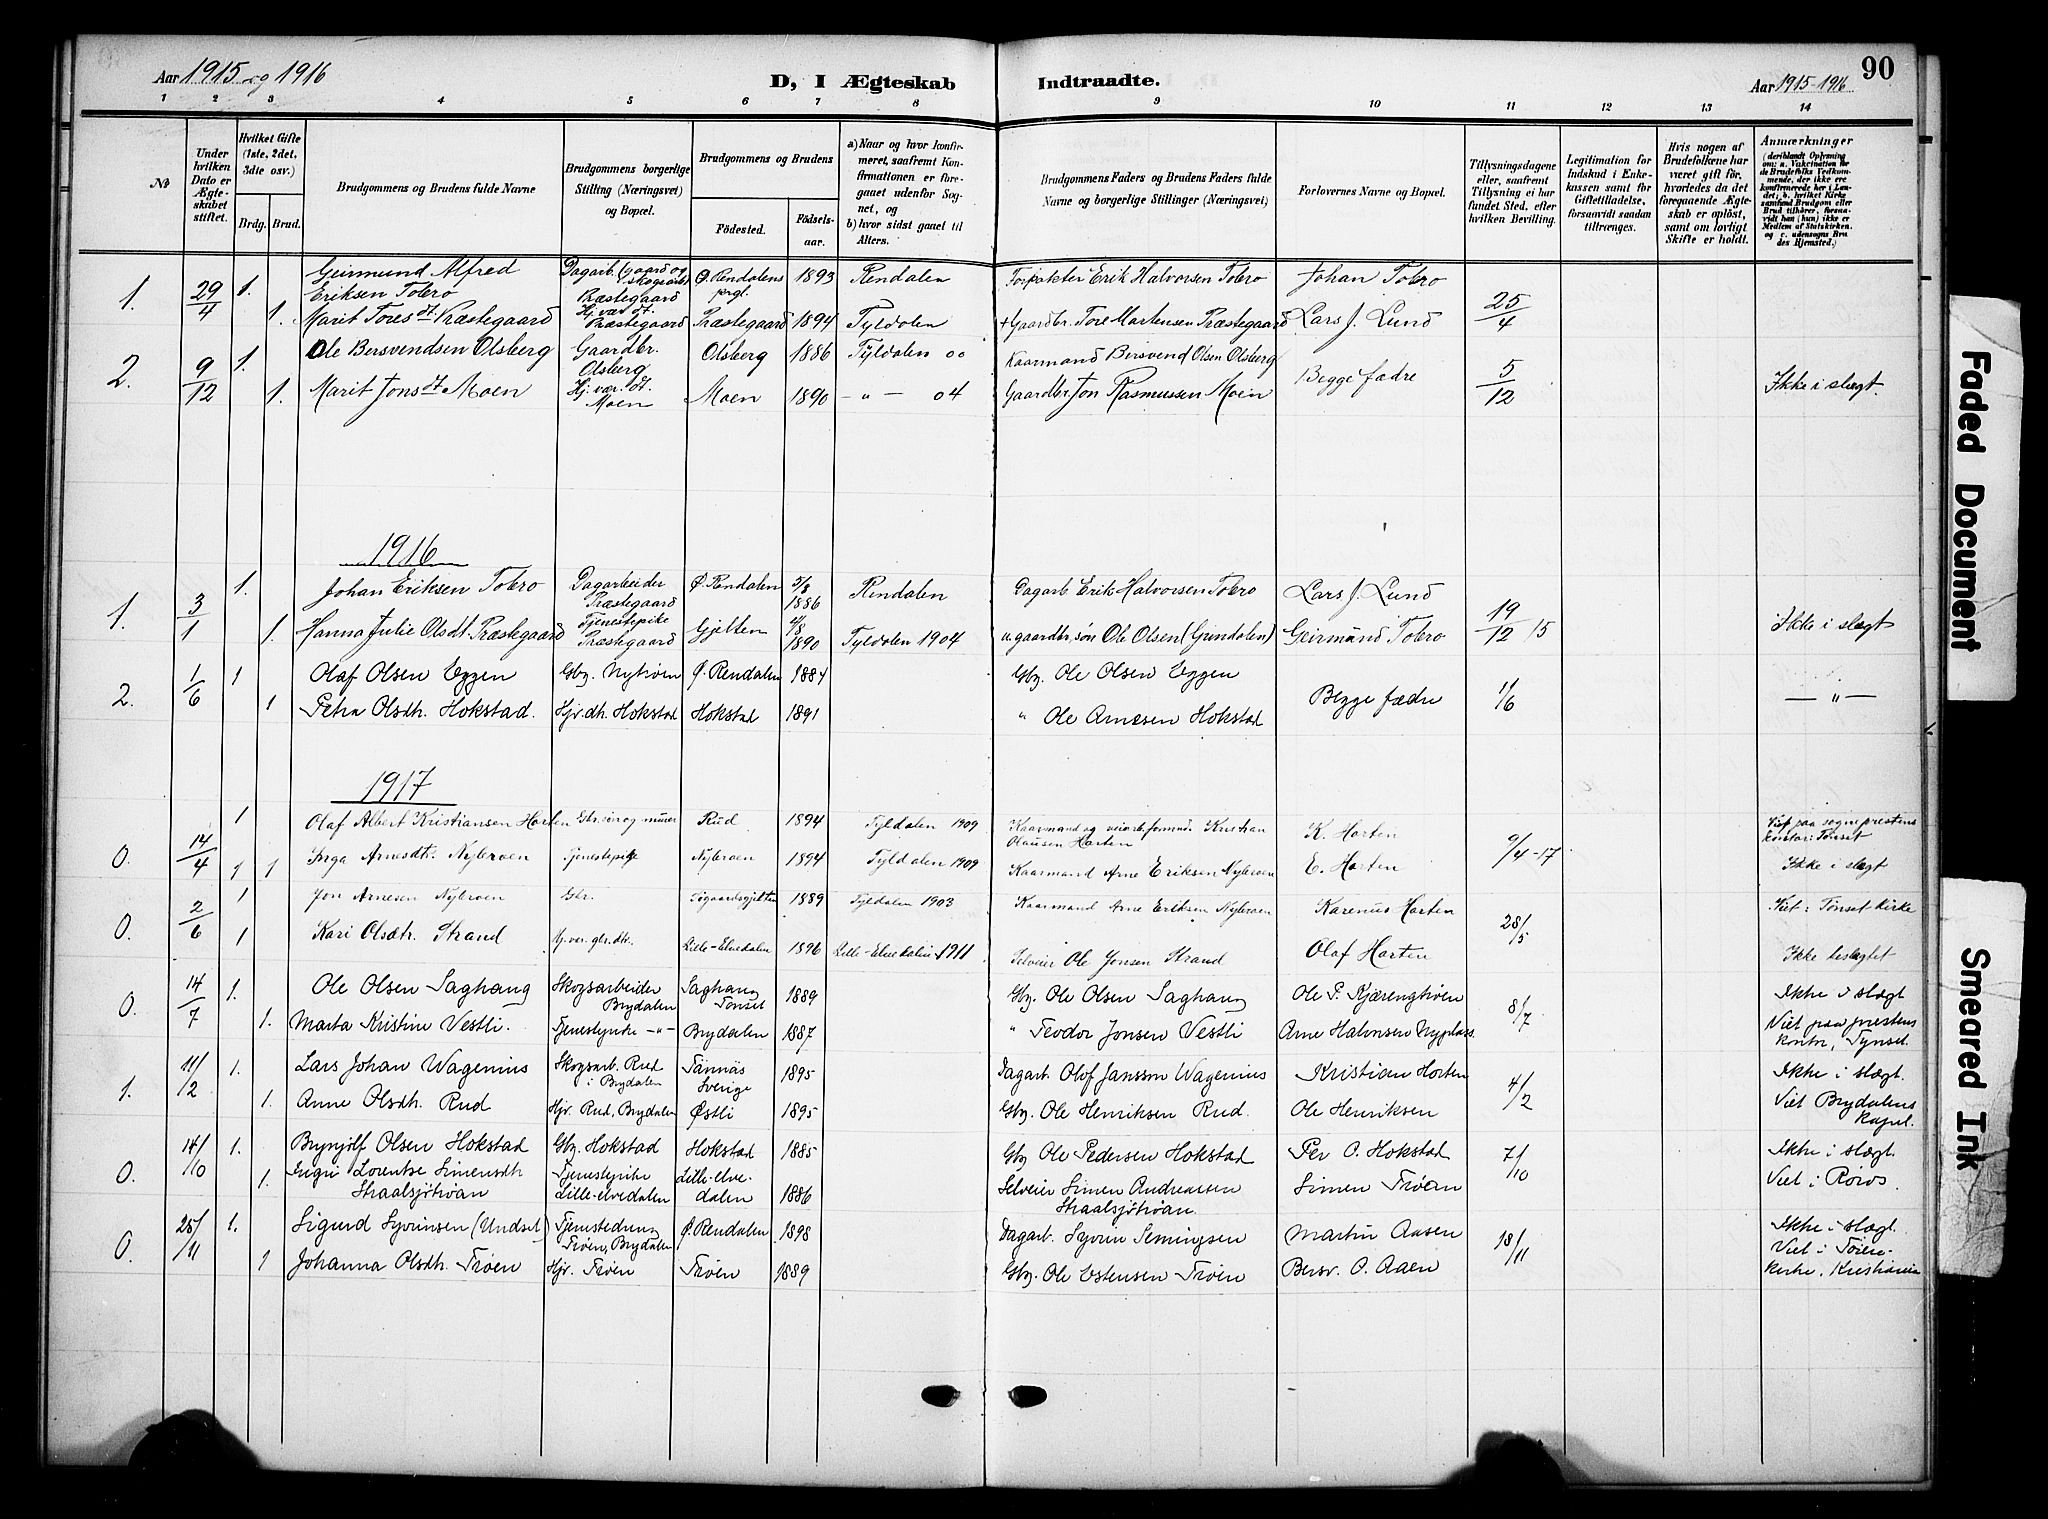 Aar 1915 og 1916
D, I Ægteskab Indtraadte.
Aar 1915-1916
90
1 2 3 4 5 6 7 8 9 10 11 12 13 14
№
Under hvilken Dato er Ægteskabet stiftet.
Hvilket Gifte (1ste, 2det, 3die osv.)
Brdg. Brud.
Brudgommens og Brudens fulde Navne
Brudgommens borgerlige Stilling (Næringsvei) og Bopæl.
Brudgommens og Brudens
Fødested. Fødselsaar.
a) Naar og hvor konfirmeret, saafremt Konfirmationen er foregaaet udenfor Sognet, og
b) hvor sidst gaaet til Alters.
Brudgommens Faders og Brudens Faders fulde Navne og borgerlige Stillinger (Næringsvei)
Forlovernes Navne og Bopæl.
Tillysningsdagene eller, saafremt Tillysning ei har fundet Sted, efter hvilken Bevilling.
Legitimation for Indskud i Enkekassen samt for Giftetilladelse, forsaavidt saadan tiltrænges.
Hvis nogen af Brudefolkene har været gift før, hvorledes da det foregaaende Ægteskab er opløst, samt om lovligt Skifte er holdt.
Anmærkninger
(deriblandt Oplysning om: a. Vakcination for de Brudefolks Vedkommende, der ikke ere konfirmerede her i Landet; b. hvilket Kirkesamfund Brudgom eller Brud tilhører, forsaavidt han (hun) ikke er Medlem af Statskirken, og c. udensogns Brudes Hjemsted.)
1. 29/4 1. Geirmund Alfred Eriksen Tobro Dagarb. (gaard og skogsarb) Præstegaard Ø. Rendalens prgl. 1893 Rendalen Forpakter Erik Halvorsen Tobro Johan Tobro 25/4
1. Marit Tores dt. Præstegaard Hj. vær. dt. Præstegaard Præstegaard 1894 Tyldalen + Gaardbr. Tore Mortensen Præstegaard Lars J. Lund
2. 9/12 1. Ole Bersvendsen Olsberg Gaardbr. Olsberg Olsberg 1886 Tyldalen 00 Kaarmand Bersvend Olsen Olsberg Begge fædre 5/12
1. Marit Jons dt Moen Hj. vær. dt. Moen Moen 1890 - " - 04 Gaardbr Jon Rasmussen Moen Ikke i slægt.
1916
1. 3/1 1. Johan Eriksen Tobro Dagarbeider Præstegaard Ø. Rendalen 5/8 1886 Rendalen Dagarb Erik Halvorsen Tobro Lars J. Lund 19/12 15
1. Hanna Julie Olsdt Præstegaard Tjenestepike Præstegaard Gjelten 4/8 1890 Tyldalen 1904 u. gaardbr. søn Ole Olsen (Grindalen) Geirmund Tobro Ikke i slægt
2. 1/6 1 Olaf Olsen Eggen Gbg. Nytrøen Ø. Rendalen 1884 Gbg. Ole Olsen Eggen Begge fædre 1/6 - " -
1 Petra Olsdh. Hokstad. Hjr. dh. Hokstad Hokstad 1891 " Ole Arnesen Hokstad
1917
0. 14/4 1 Olaf Albert Kristiansen Horten Gbr. søn og murer Rud 1894 Tyldalen 1909 Kaarmand og veiarb. formand Kristian Olausen Horten K. Horten 9/4-17 Viet paa sogneprestens kontor i Tønset
1 1 Inga Arnesdt. Nybroen Tjenestepige Nybroen 1894 Tyldalen 1909 Kaarmand Arne Eriksen Nybroen E. Horten Ikke i slægt
0. 2/6 1 Jon Arnesen Nybroen Gbr. 1889 Tyldalen 1903 Kaarmand Arne Eriksen Nybroen Karenus Horten 28/5 Viet i Tønset kirke
1 Kari Olsdtr. Strand Hj. vær. gbr. dtr. Lille-Elvedalen 1896 Lille-Elvedalen 1911 Selveier Ole Jonsen Strand Olaf Horten Ikke beslegtet
0. 14/7 1. Ole Olsen Saghaug Skogsarbeider Brydalen Saghaug Tønset 1889 Gbg. Ole Olsen Saghaug Ole P. Kjærengtrøen 8/7 Ikke i slægt
1. Marta Kristine Vestli. Tjenestepike - " - Brydalen 1887 " Teodor Jonsen Vestli Arne Halvorsen Nyplass Viet paa prestens kontor, Tynset.
1. 11/2 1. Lars Johan Wagenius Skogsarb. Rud i Brydalen Tännäs Sverige 1895 Dagarb. Olof Jansson Wagenius Kristian Horten 4/2 Ikke i slægt.
1. Anne Olsdh. Rud Hjr. Rud, Brydalen Østli 1895 Gbg. Ole Henriksen Rud. Ole Henriksen Viet Brydalens kapel.
0. 14/10 1. Brynjolf Olsen Hokstad Gbg. Hokstad Hokstad 1885 Gbg Ole Pedersen Hokstad Per O. Hokstad 7/10 Ikke i slægt.
1. Ingri Lorentse Simensdh Straalsjøtrøan Tjenestepike Lille-elvedalen Lille-elvedalen 1886 Selveier Simen Andreassen Straalsjøtrøan Simen Trøen Viet i Røros.
0. 25/11 1. Sigurd Syverinsen (Undset) Tjenestedreng Trøen, Brydalen Ø. Rendalen 1898 Dagarb. Syverin Semingsen Martin Aasen 18/11 Ikke i slægt.
1 Johanna Olsdh. Trøen Hjr. Trøen Trøen 1889 Gbg. Ole Estensen Trøen Bersv. O. Aaen Viet i Tøienkirke, Kristiania
Faded Document
Smeared Ink